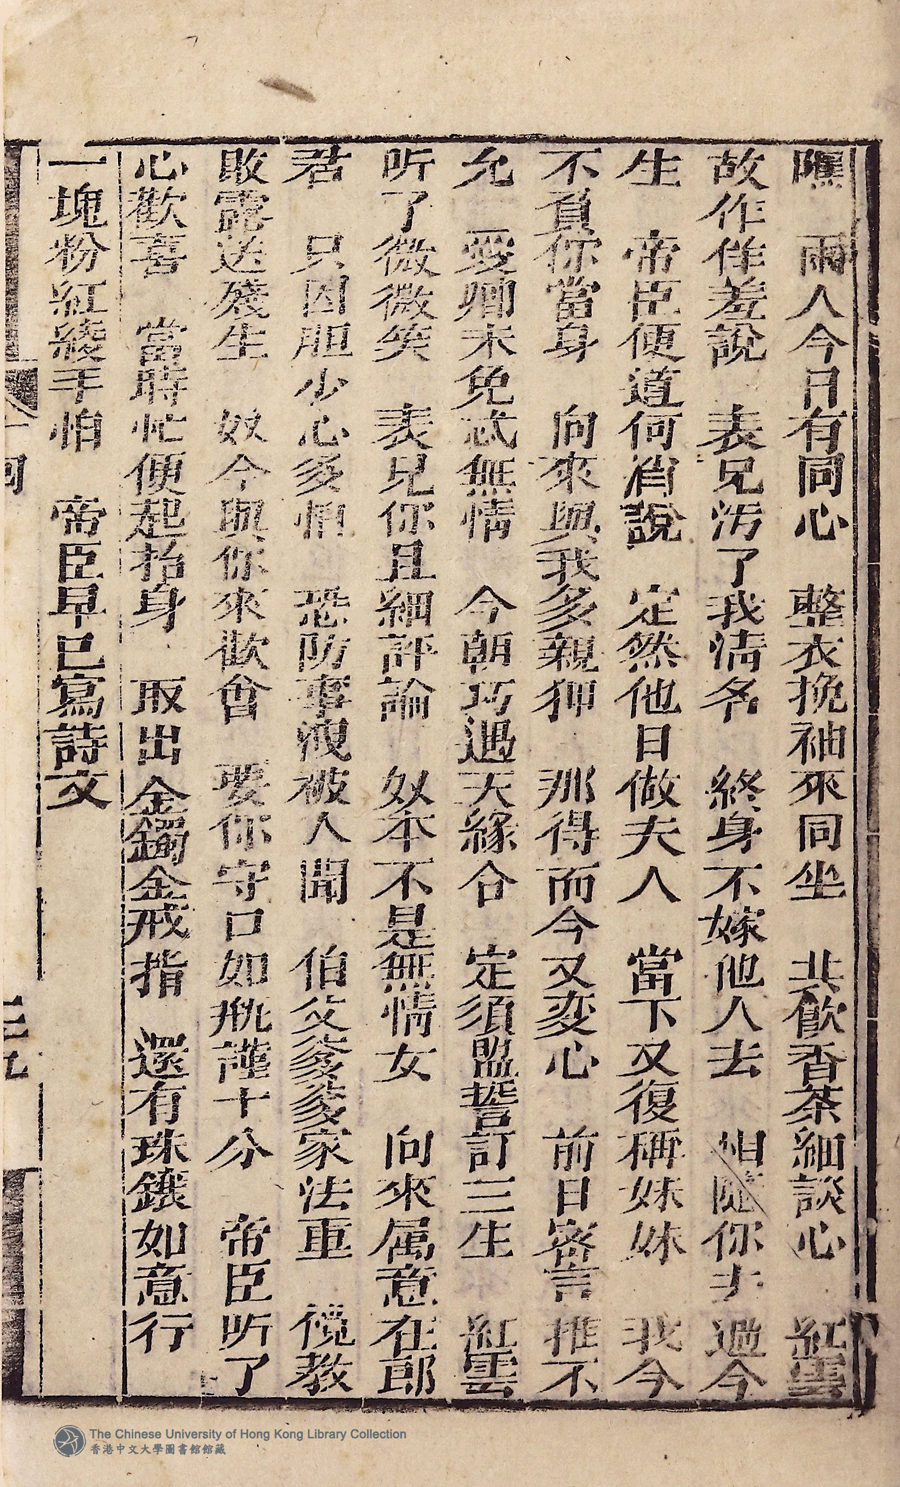 雨人今日有同心　整衣挽袖來同坐　共飲香茶細談心　紅雲
故作佯羞說　表兄污了我清名　終身不嫁他人去　怕隨你去過今
生　帝臣便道何消說　定然他日做夫人　當下又復稱妹妹　我今
不負你當身　向來與我多親狎　那得而今又变心　前日密言推不
允　愛卿未免忒無情　今朝巧遇天緣合　定須盟誓訂三生　紅雲
听了微微笑　表兄你且細評論　奴本不是無情女　向來属意在郎
君　只因胆少心多怕　恐防事洩被人聞　伯父爹爹家法重　儻教
敗露送殘生　奴今與你來歡會　要你守口如瓶謹十分　帝臣听了
心歡喜　當時忙便起抬身　取出金鐲金戒指　還有珠鑲如意行
一塊粉紅綾手怕　帝臣早已寫詩文
二九
The Chinese University of Hong Kong Library Collection
香港中文大學圖書館館藏